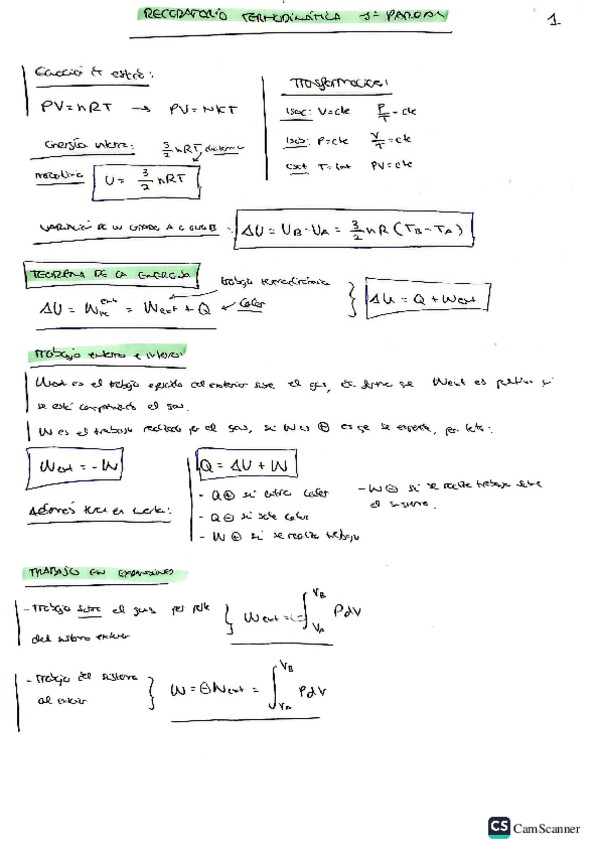 RECORDATORIO TERMODINÁMICA 1º PARCIAL
1
Ecuación de estado:
PV=nRT → PV=NKT
Energía interna: 3/2 nRT
U = 3/2 nRT
Transformaciones:
Isoc: V=cte P/T=cte
Isob: P=cte V/T=cte
T=cte PV=cte
VARIACIÓN DE UN ESTADO A
ΔU = U_B - U_A = 3/2 nR (T_B - T_A)
TEOREMA DE LA ENERGÍA
trabajo termodinámico
ΔU = W = Wext + Q ← Calor
ΔU = Q + Wext
Trabajo externo e interno:
Wext es el trabajo ejercido del exterior sobre el gas, de forma que Wext es positivo si
se está comprimiendo el gas.
W es el trabajo realizado por el gas, si W es ⊕ es que se expande, por tanto:
Wext = -W
Además tener en cuenta:
Q = ΔU + W
- Q⊕ si entra calor
- Q⊖ si sale calor
- W⊕ si se realiza trabajo
- W⊖ si se realiza trabajo sobre
el sistema.
TRABAJO EN EXPANSIONES
- Trabajo sobre el gas por parte
del sistema exterior
Wext = (-) ∫ V_A V_B PdV
- Trabajo del sistema
al exterior
W = ⊖Wext = ∫ V_A V_B PdV
CS CamScanner